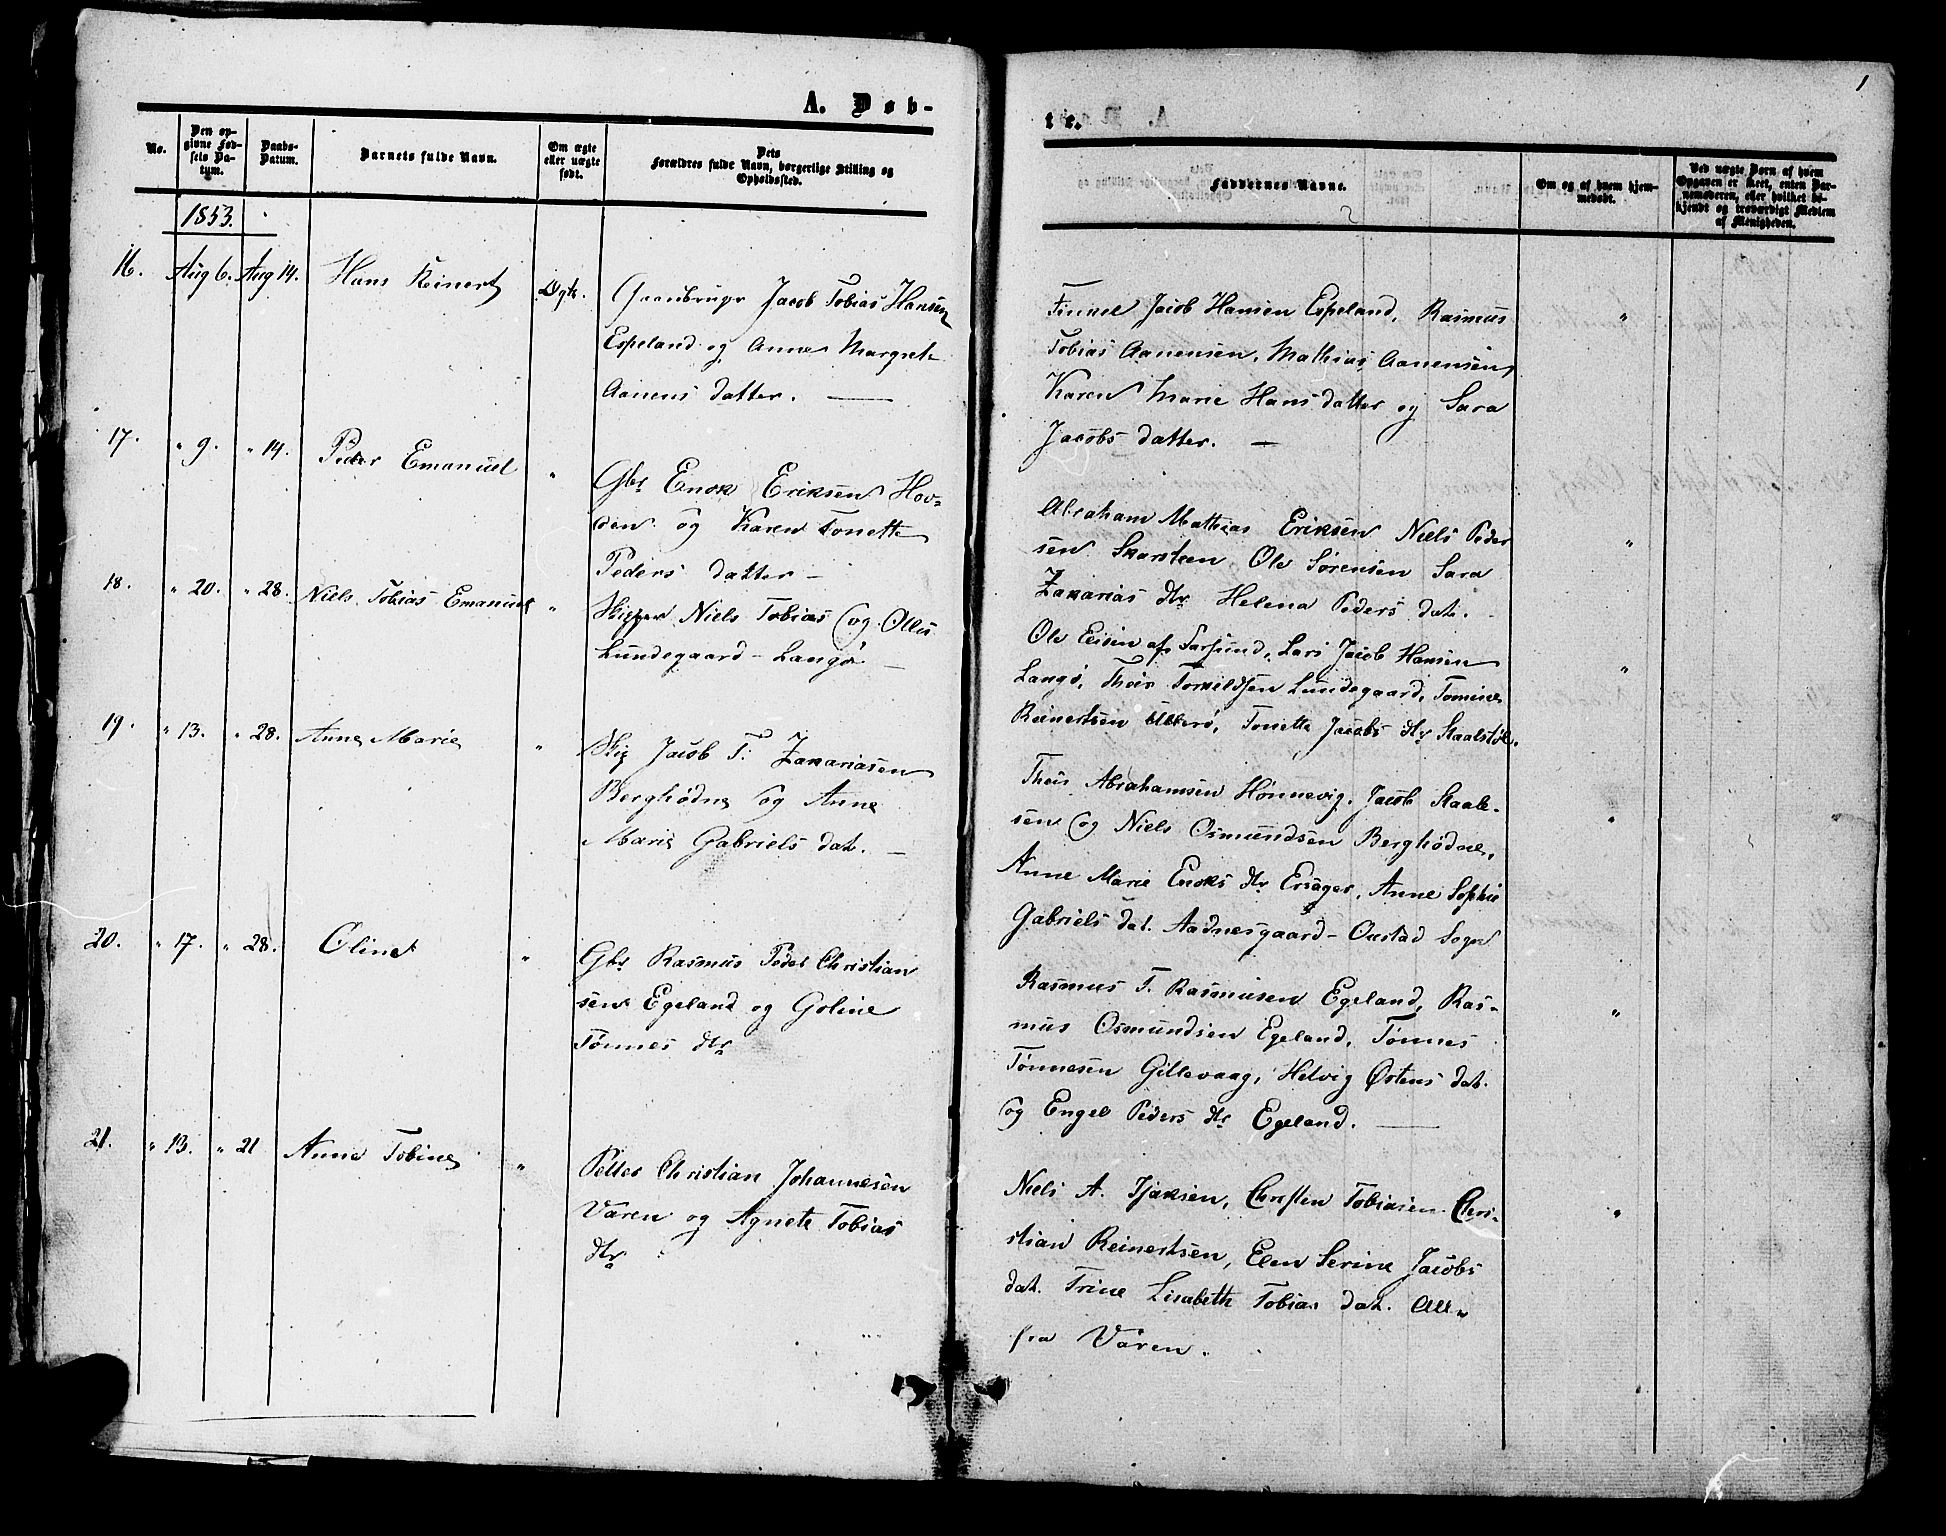 A. Døb-
No.
Den op-
givne Fød-
sels Da-
tum.
Daabs-
Datum.
Barnets fulde Navn.
Om ægte
eller uægte
født.
Dets
Forældres fulde Navn, borgerlige Stilling og
Opholdssted.
1853.
16. Aug 6. Aug 14. Hans Reinert Ægte.
Jacob Tobias Hansen
Espeland og Anne Margrete
Aanens datter. —
17. " 9. " 14. Peder Emanuel "
Gbr Enok Eriksen Hov-
den og Karen Tonette
Peders datter —
18. " 20. " 28. Niels Tobias Emanuel "
Skipper Niels Tobias og Olles
Lundegaard - Langø —
19. " 13. " 28. Anne Marie "
Skip Jacob T. Zakariasen
Berghødne og Anne
Marie Gabriels dat. —
20. " 17. " 28. Oline "
Gbr Rasmus Peder Christian
sen Egeland og Goline
Tønnes dtr
21. " 13. " 21 Anne Tobine "
Petter Christian Johannesen
Våren og Agnete Tobias
dtr
1
ter.
Faddernes Navne.
Om og af hvem hjem-
medøbt.
Ved uægte Børn af hvem
Opgaven er skeet, enten Bar-
nemoderen, eller hvilket be-
kjendt og troværdigt Medlem
af Menigheden.
Jacob Hansen Espeland, Rasmus "
Tobias Aanensen, Mathias Aanensen,
Karen Marie Hans datter og Sara
Jacobs datter. —
Abraham Mathias Eriksen Niels Peder
sen Skarsteen Ole Sørensen Sara "
Zakarias dtr Helena Peders dat. -
Ole af Farsund, Lars Jacob Hansen
Langø, Theis Torkildsen Lundegaard, Tomine "
Reinertsen Ullerø, Tonette Jacobs dtr Skaalstøl.
Theis Abrahamsen Hønnevig, Jacob Staale-
sen og Niels Osmundsen Berghødne, "
Anne Marie Enoks dtr Ersager, Anne Sophie
Gabriels dat. Aadnesgaard - Oustad Sogn
Rasmus T. Rasmusen Egeland, Ras-
mus Osmundsen Egeland, Tønnes "
Tønnesen Gillevaag, Helvig Østens dat.
og Engel Peders dtr Egeland. —
Niels A. Tjaksen, Christen Tobiasen Chri- "
stian Reinertsen, Elen Serine Jacobs
dat. Trine Lisabeth Tobias dat. Alle
fra Våren.